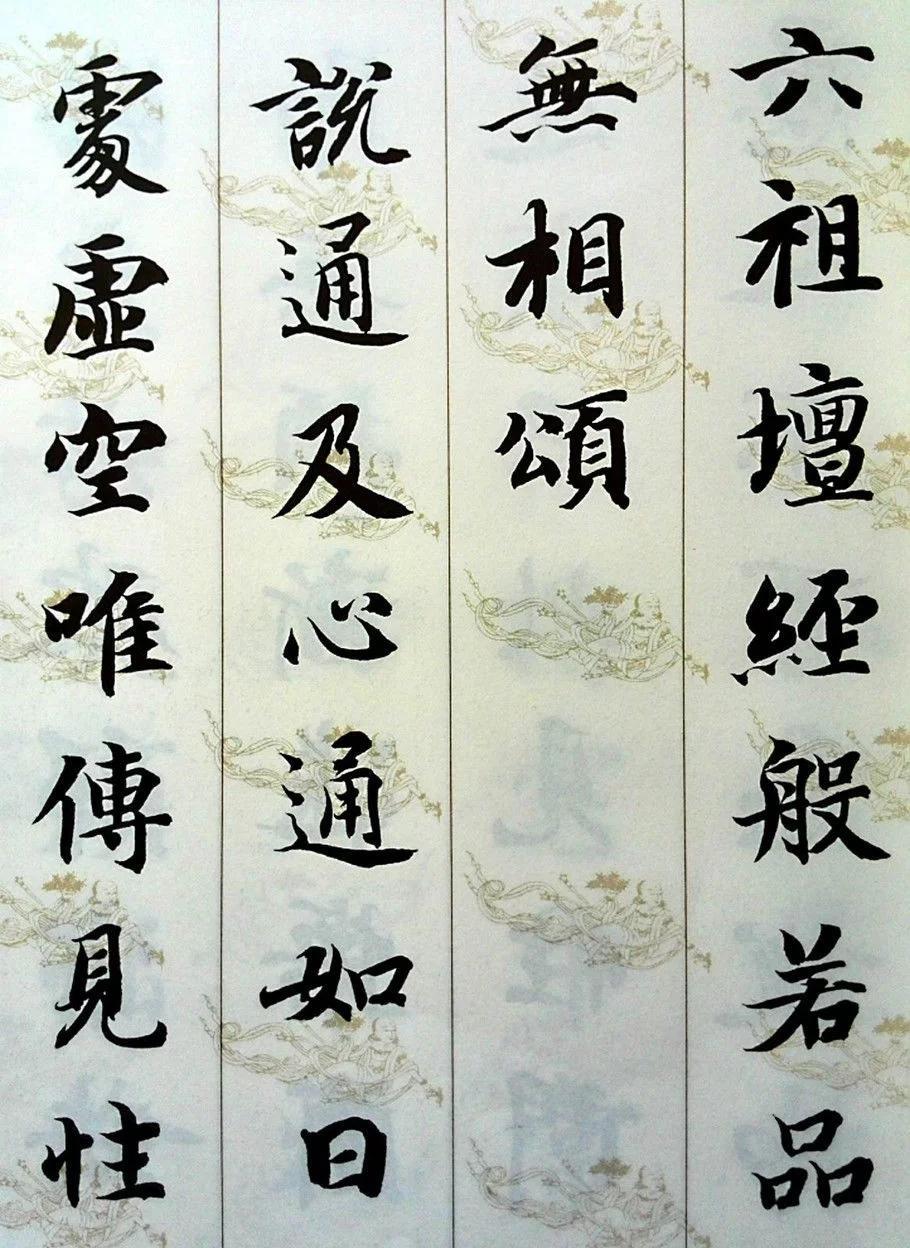 六祖壇經般若品
無相頌
説通及心通如日
處虛空唯傳見性